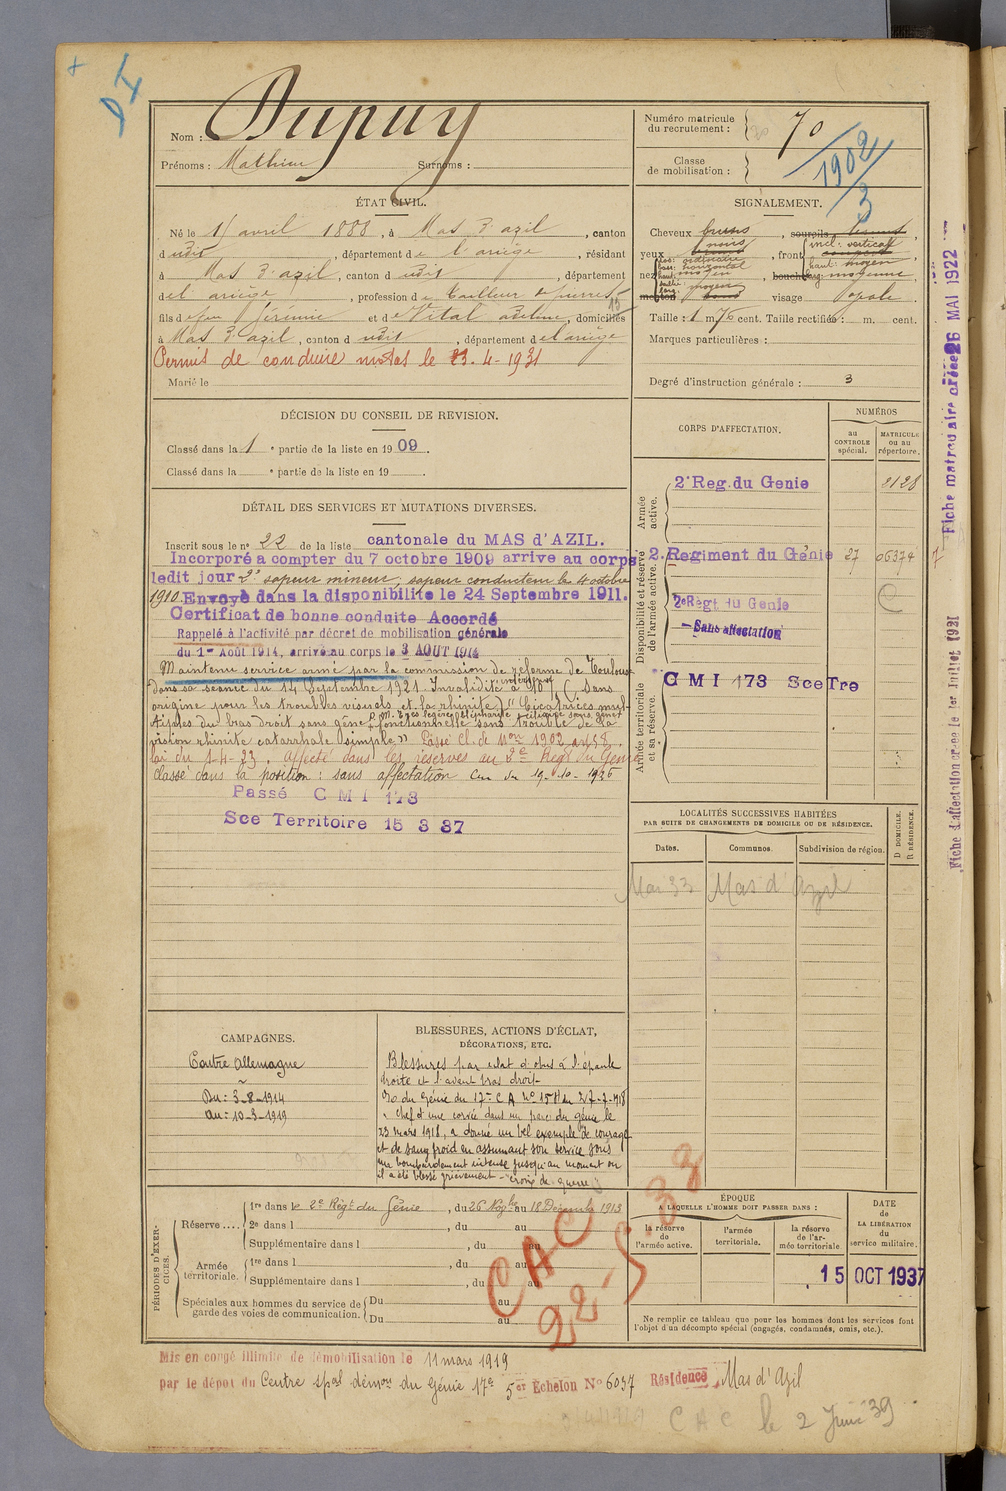 + DI
Nom : Dupuy
Prénoms : Mathieu Surnoms :
Numéro matricule du recrutement : 70
Classe de mobilisation : 1902/3
ÉTAT CIVIL.
Né le 1 avril 1888, à Mas d'azil, canton
dudit, département de l'ariège, résidant
à Mas d'azil, canton dudit, département
de l'ariège, profession de tailleur de pierres
fils de feu Jérémie et de Vital adeline, domiciliés
à Mas d'azil, canton dudit, département de l'ariège
Permis de conduire motos le 23.4-1931
Marié le
SIGNALEMENT.
Cheveux bruns, sourcils
yeux noirs, front incl: vertical
haut: moyen
nez dos: rectiligne
base: horizontal
haut: moyen, bouche larg: moyenne
saillie: moyen
larg:
menton rond visage ovale
Taille : 1 m. 76 cent. Taille rectifiée : m. cent.
Marques particulières :
Degré d'instruction générale : 3
DÉCISION DU CONSEIL DE REVISION.
Classé dans la 1e partie de la liste en 1909.
Classé dans la e partie de la liste en 19 .
DÉTAIL DES SERVICES ET MUTATIONS DIVERSES.
Inscrit sous le no 22 de la liste cantonale du MAS d'AZIL.
Incorporé à compter du 7 octobre 1909 arrive au corps
ledit jour 2e sapeur mineur, sapeur conducteur le 4 octobre
1910. Envoyé dans la disponibilité le 24 Septembre 1911.
Certificat de bonne conduite Accordé
Rappelé à l'activité par décret de mobilisation générale
du 1er Août 1914, arrivé au corps le 3 AOUT 1914
Maintenu service armé par la commission de réforme de Toulouse
dans sa séance du 14 Septembre 1921. Invalidité inférieure à 10 % (Sans
origine pour les troubles visuels et la rhinite) "Cicatrices mul-
tiples du bras droit sans gêne fonctionnelle sans trouble de la
vision rhinite catarrhale simple" Passé cl. de Mon 1902 art 58.
loi du 1-4-23. Affecté dans les réserves au 2e Régt du Génie
Classé dans la position : sans affectation Cm du 19-10-1936
Passé C M I 173
Sce Territoire 15 3 37
CORPS D'AFFECTATION.
NUMÉROS
au CONTROLE spécial.
MATRICULE ou au répertoire.
Armée active.
2e Reg. du Genie 8128
Disponibilité et réserve de l'armée active.
2. Regiment du Génie 27 06374
2e Régt du Genie
Sans affectation
Armée territoriale et sa réserve.
C M I 173 Sce Tre
Fiche matriculaire créée 26 MAI 1922
Fiche d'affectation créée le 1er Juillet 1931
LOCALITÉS SUCCESSIVES HABITÉES
PAR SUITE DE CHANGEMENTS DE DOMICILE OU DE RÉSIDENCE.
Dates. Communes. Subdivision de région. D. DOMICILE. R RÉSIDENCE.
Mai 33 Mas d'Azil
CAMPAGNES.
Contre Allemagne
Du : 3-8-1914
au : 10-3-1919
BLESSURES, ACTIONS D'ÉCLAT,
DÉCORATIONS, ETC.
Blessures par éclat d'obus à l'épaule
droite et l'avant bras droit
du Génie du 17e C A
chef d'une corvée dans un parc du génie le
23 mars 1918, a donné un bel exemple de courage
et de sang froid en assumant son service sous
un bombardement intense jusqu'au moment où
il a été blessé grièvement - Croix de guerre
PÉRIODES D'EXERCICES.
Réserve ....
1re dans le 2e Régt du Génie, du 26 Nobre au 18 Décembre 1913
2e dans l , du au
Supplémentaire dans l , du au
Armée territoriale.
1re dans l , du au
Supplémentaire dans l , du au
Spéciales aux hommes du service de garde des voies de communication.
Du au
Du au
CAC 22-5-38
ÉPOQUE
A LAQUELLE L'HOMME DOIT PASSER DANS :
la réserve de l'armée active.
l'armée territoriale.
la réserve de l'armée territoriale
DATE de LA LIBÉRATION du service militaire.
15 OCT 1937
Ne remplir ce tableau que pour les hommes dont les services font
l'objet d'un décompte spécial (engagés, condamnés, omis, etc.).
Mis en congé illimité de démobilisation le 11 mars 1919
par le dépôt du Centre spal démon du Génie 17e 5er Echelon No 6037 Résidence Mas d'Azil
C A C le 2 Juin 39